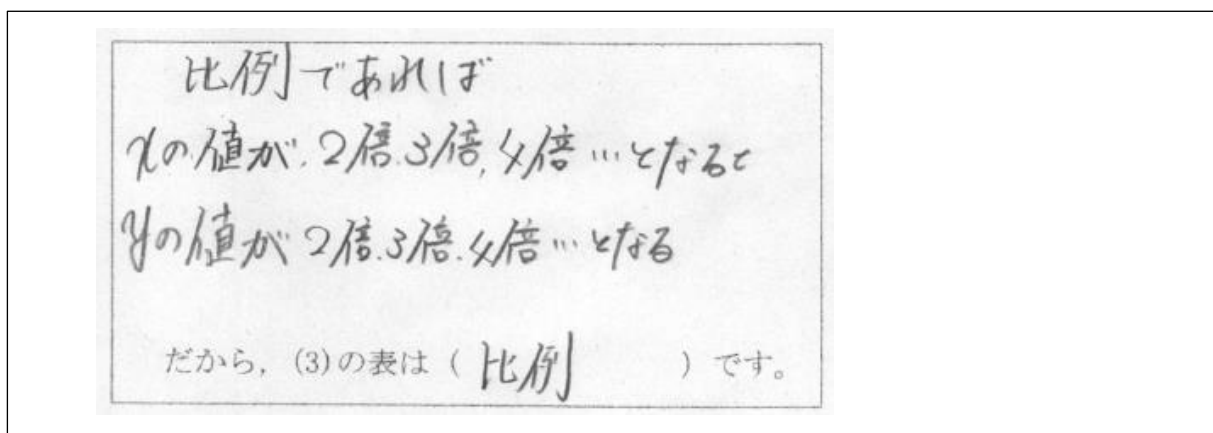 比例であれば
xの値が、2倍.3倍,4倍…となると
yの値が 2倍.3倍.4倍…となる
だから，(3)の表は（ 比例 ）です。